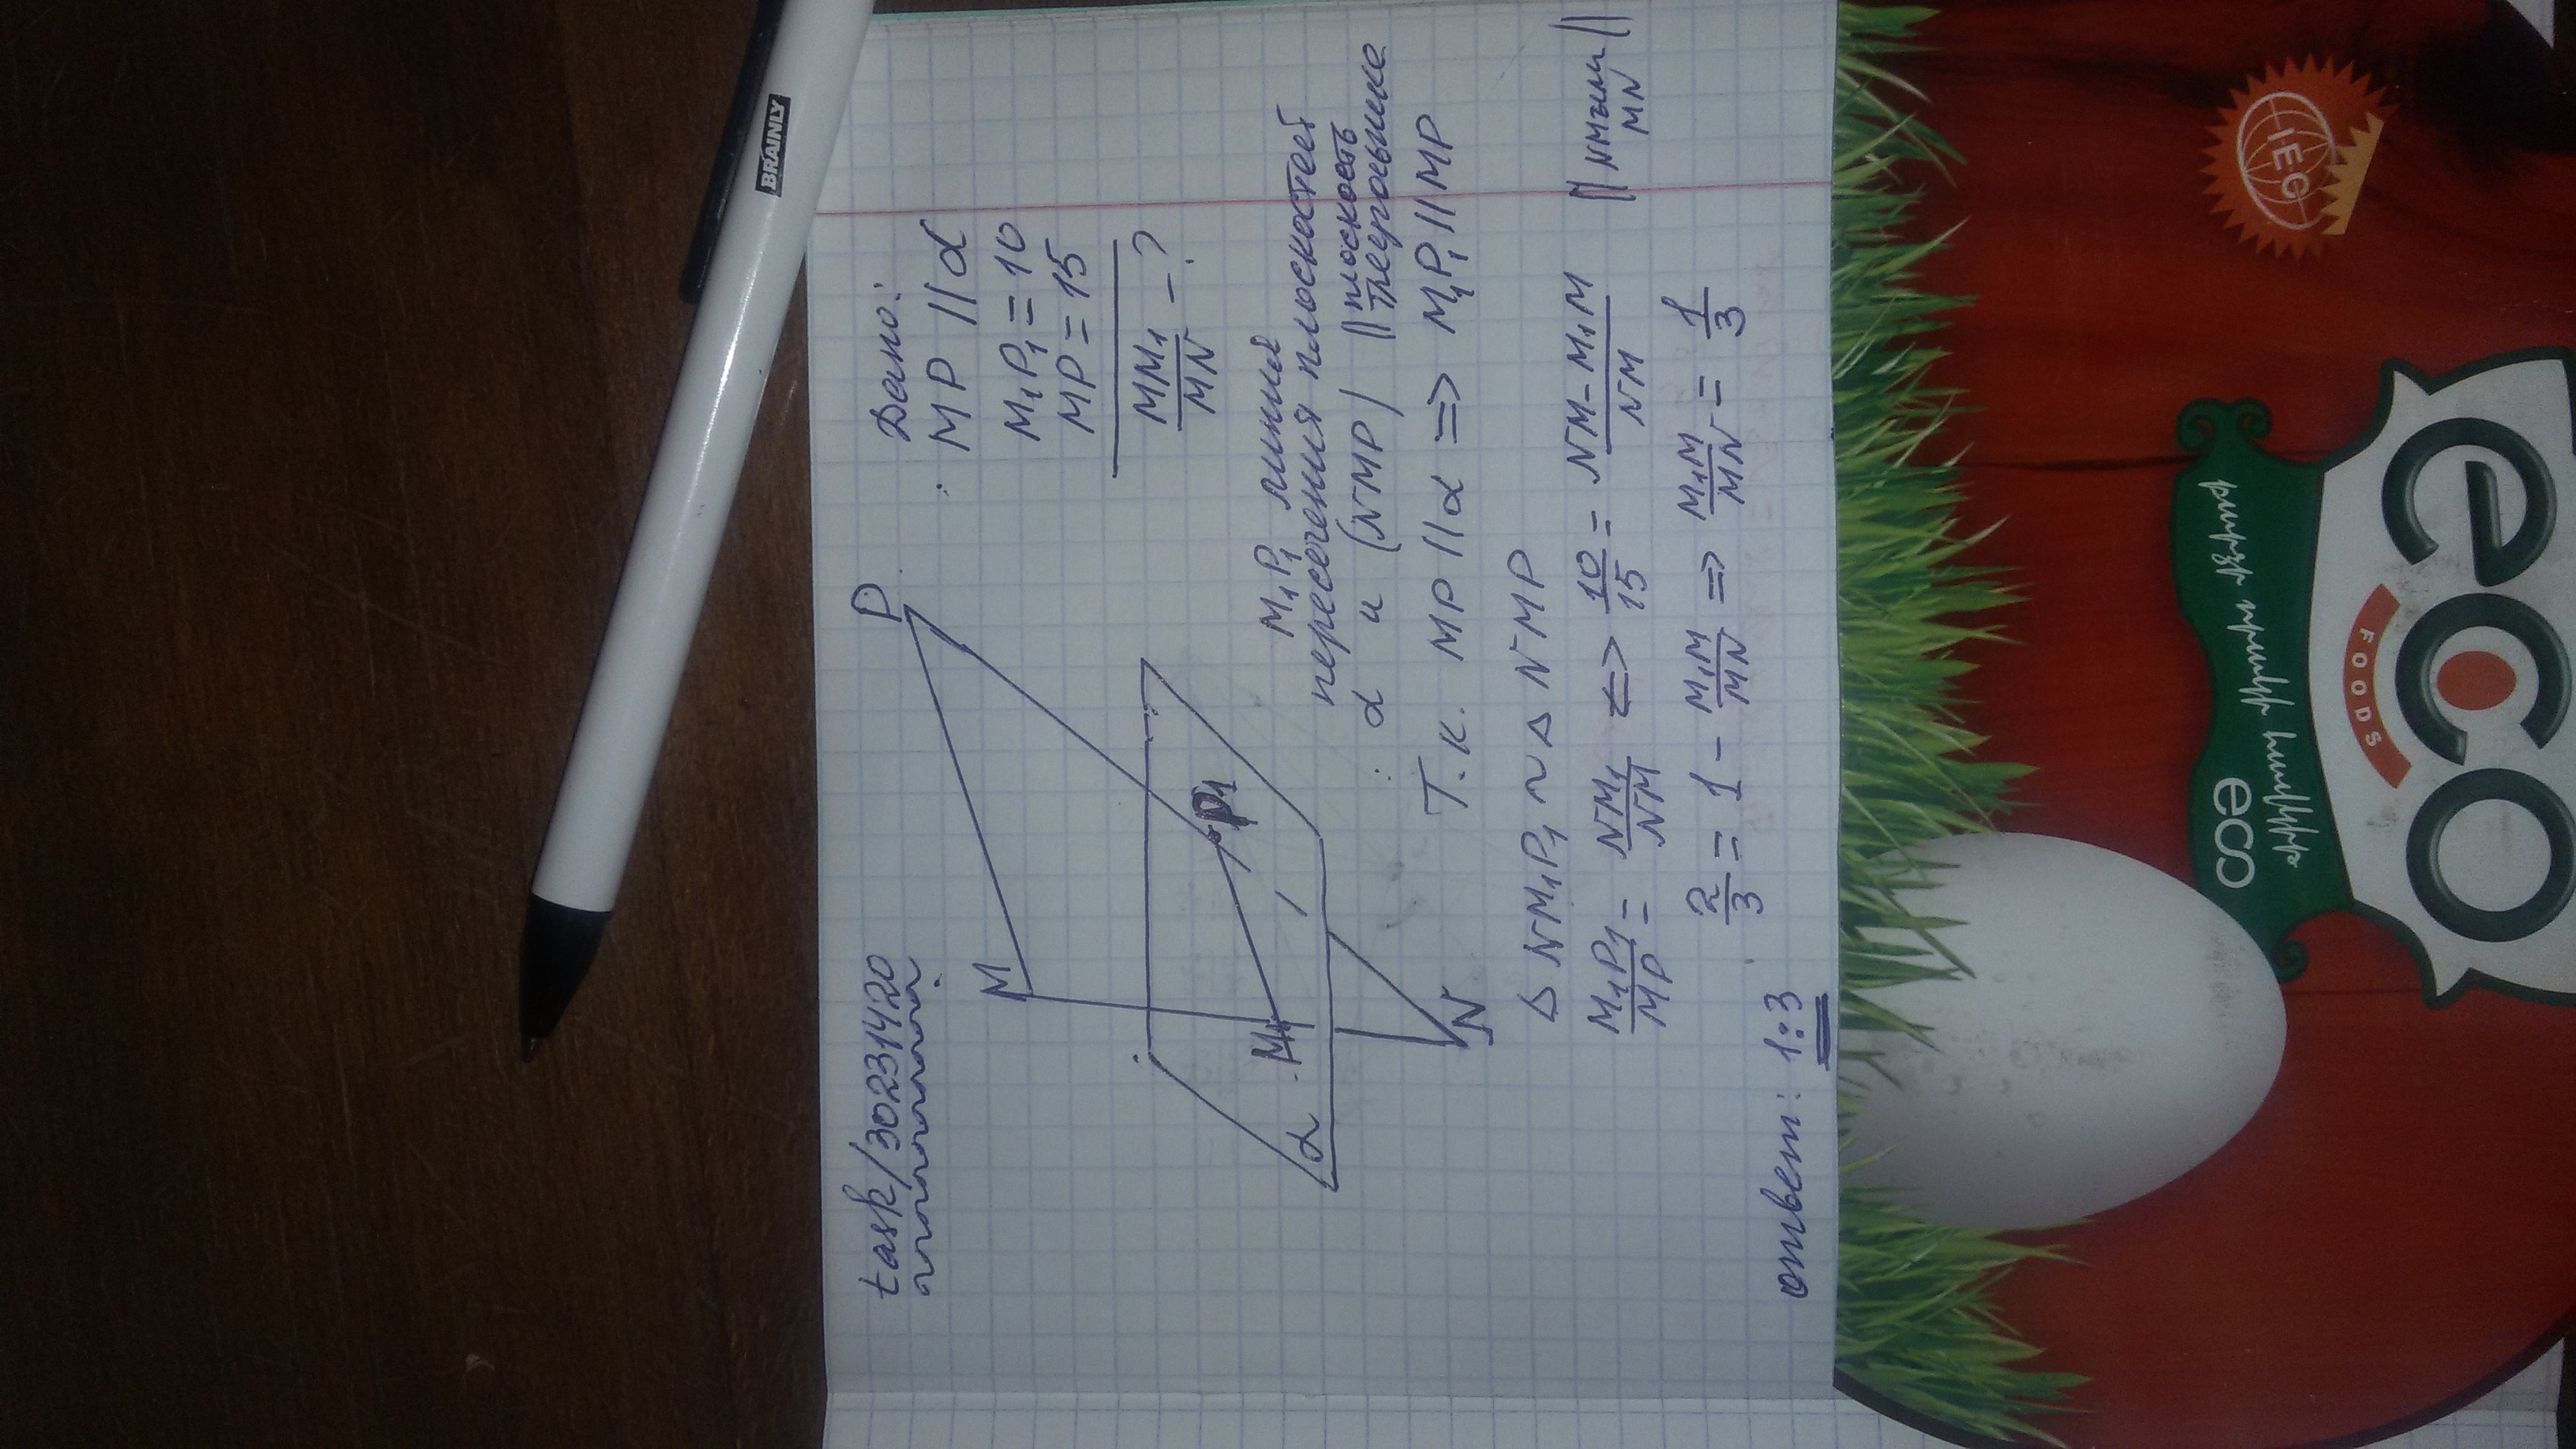 BRAINLY
task/30231420
Дано:
MP || α
M₁P₁ = 10
MP = 15
MM₁/MN - ?
P
M
P₁
M₁
α
N
M₁P₁ линия
пересечения плоскостей
α и (NMP) || плоскость
треугольнике
Т.к. MP || α => M₁P₁ || MP
Δ NM₁P₁ ~ Δ NMP
M₁P₁/MP = NM₁/NM <=> 10/15 = NM - M₁M/NM || NM или MN ||
2/3 = 1 - M₁M/MN => M₁M/MN = 1/3
ответ: 1:3
IEG
eco
FOODS
eco